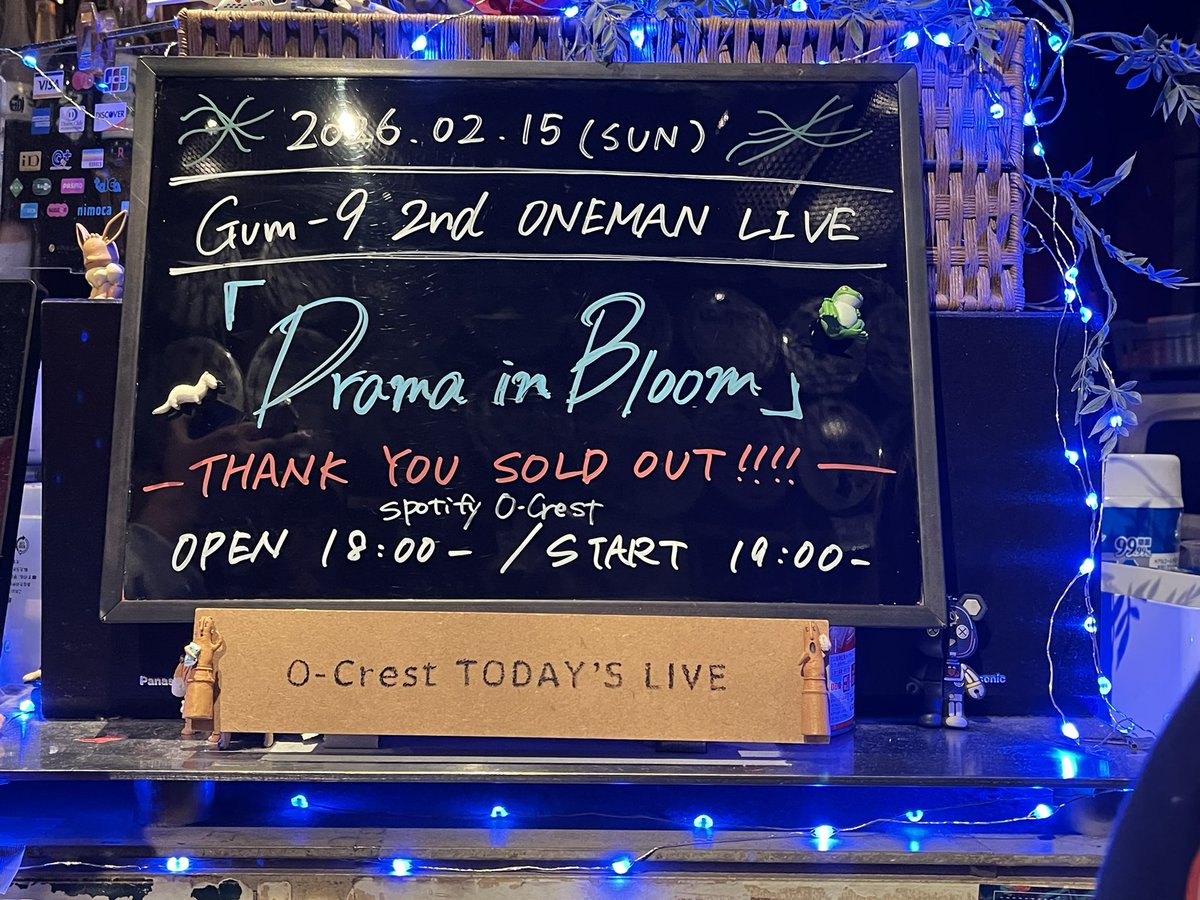 2026.02.15(SUN)
Gum-9 2nd ONEMAN LIVE
「Drama in Bloom」
—THANK YOU SOLD OUT!!!!—
spotify O-Crest
OPEN 18:00- /START 19:00-
O-Crest TODAY'S LIVE
VISA
JCB
DISCOVER
iD
PASMO
nimoca
Panas
sonic
99.9%